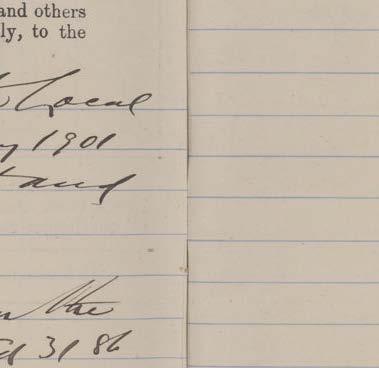 and others
ly, to the
Local
y 1901
and
31 86